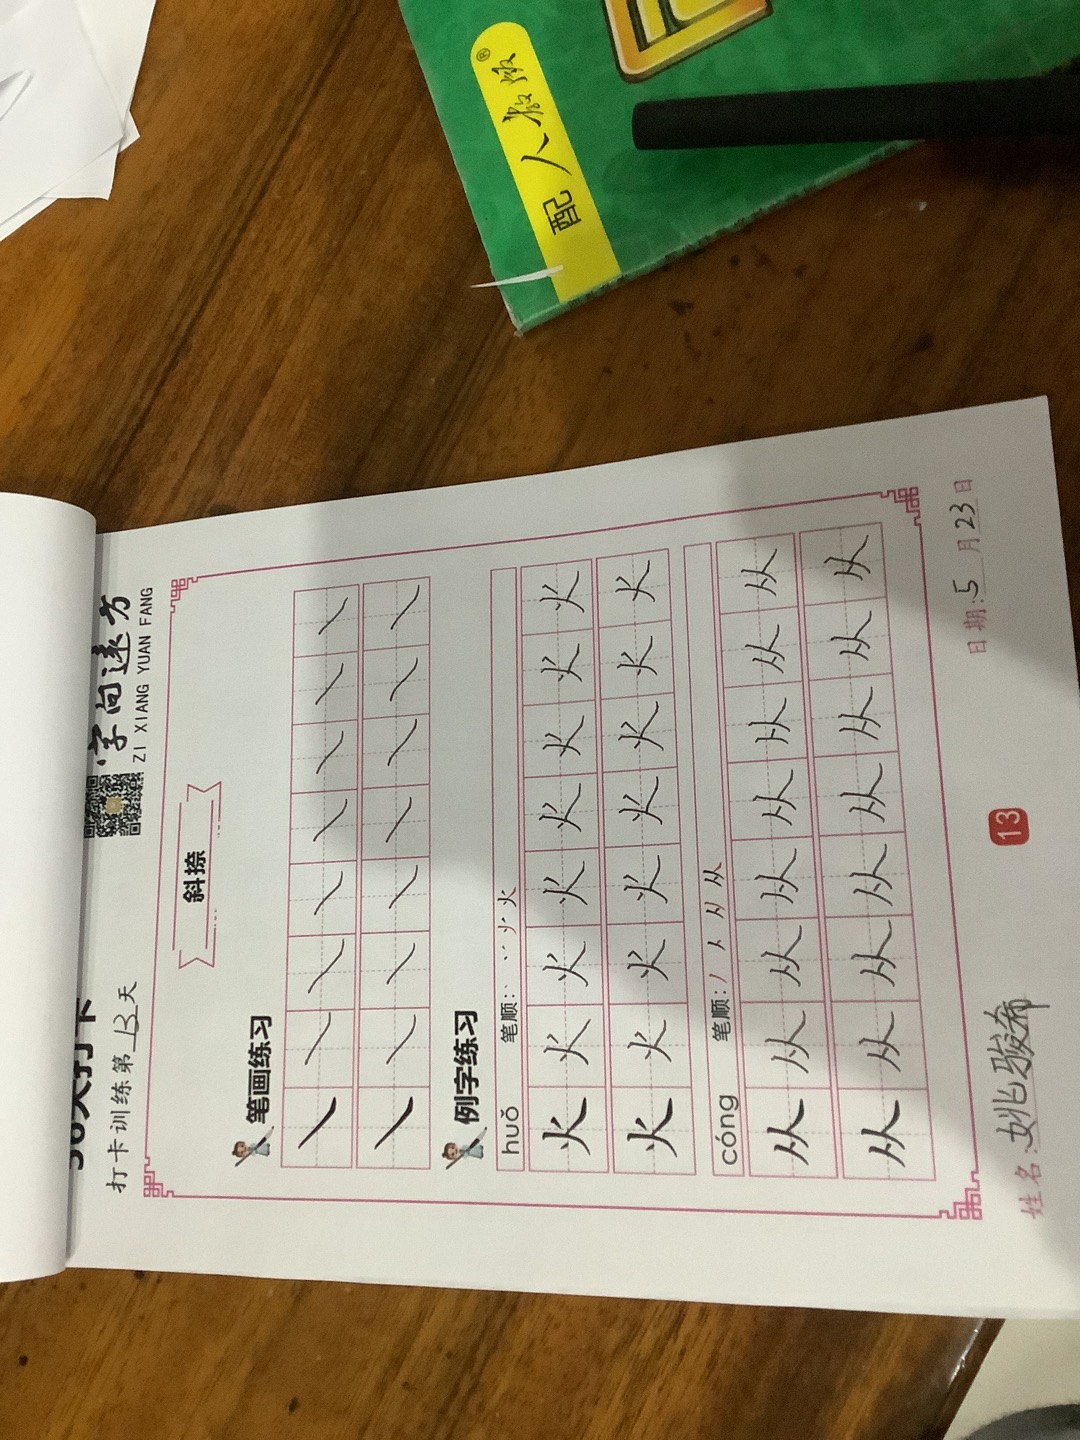 配 人教版®
字向远方
ZI XIANG YUAN FANG
打卡训练第 13 天
斜捺
笔画练习
㇏ ㇏ ㇏ ㇏ ㇏ ㇏ ㇏ ㇏
㇏ ㇏ ㇏ ㇏ ㇏ ㇏ ㇏ ㇏
例字练习
huǒ 笔顺:
火 火 火 火 火 火 火 火
火 火 火 火 火 火 火 火
cóng 笔顺:
从 从 从 从 从 从 从 从
从 从 从 从 从 从 从 从
姓名:姚骏希 13 日期:5月23日